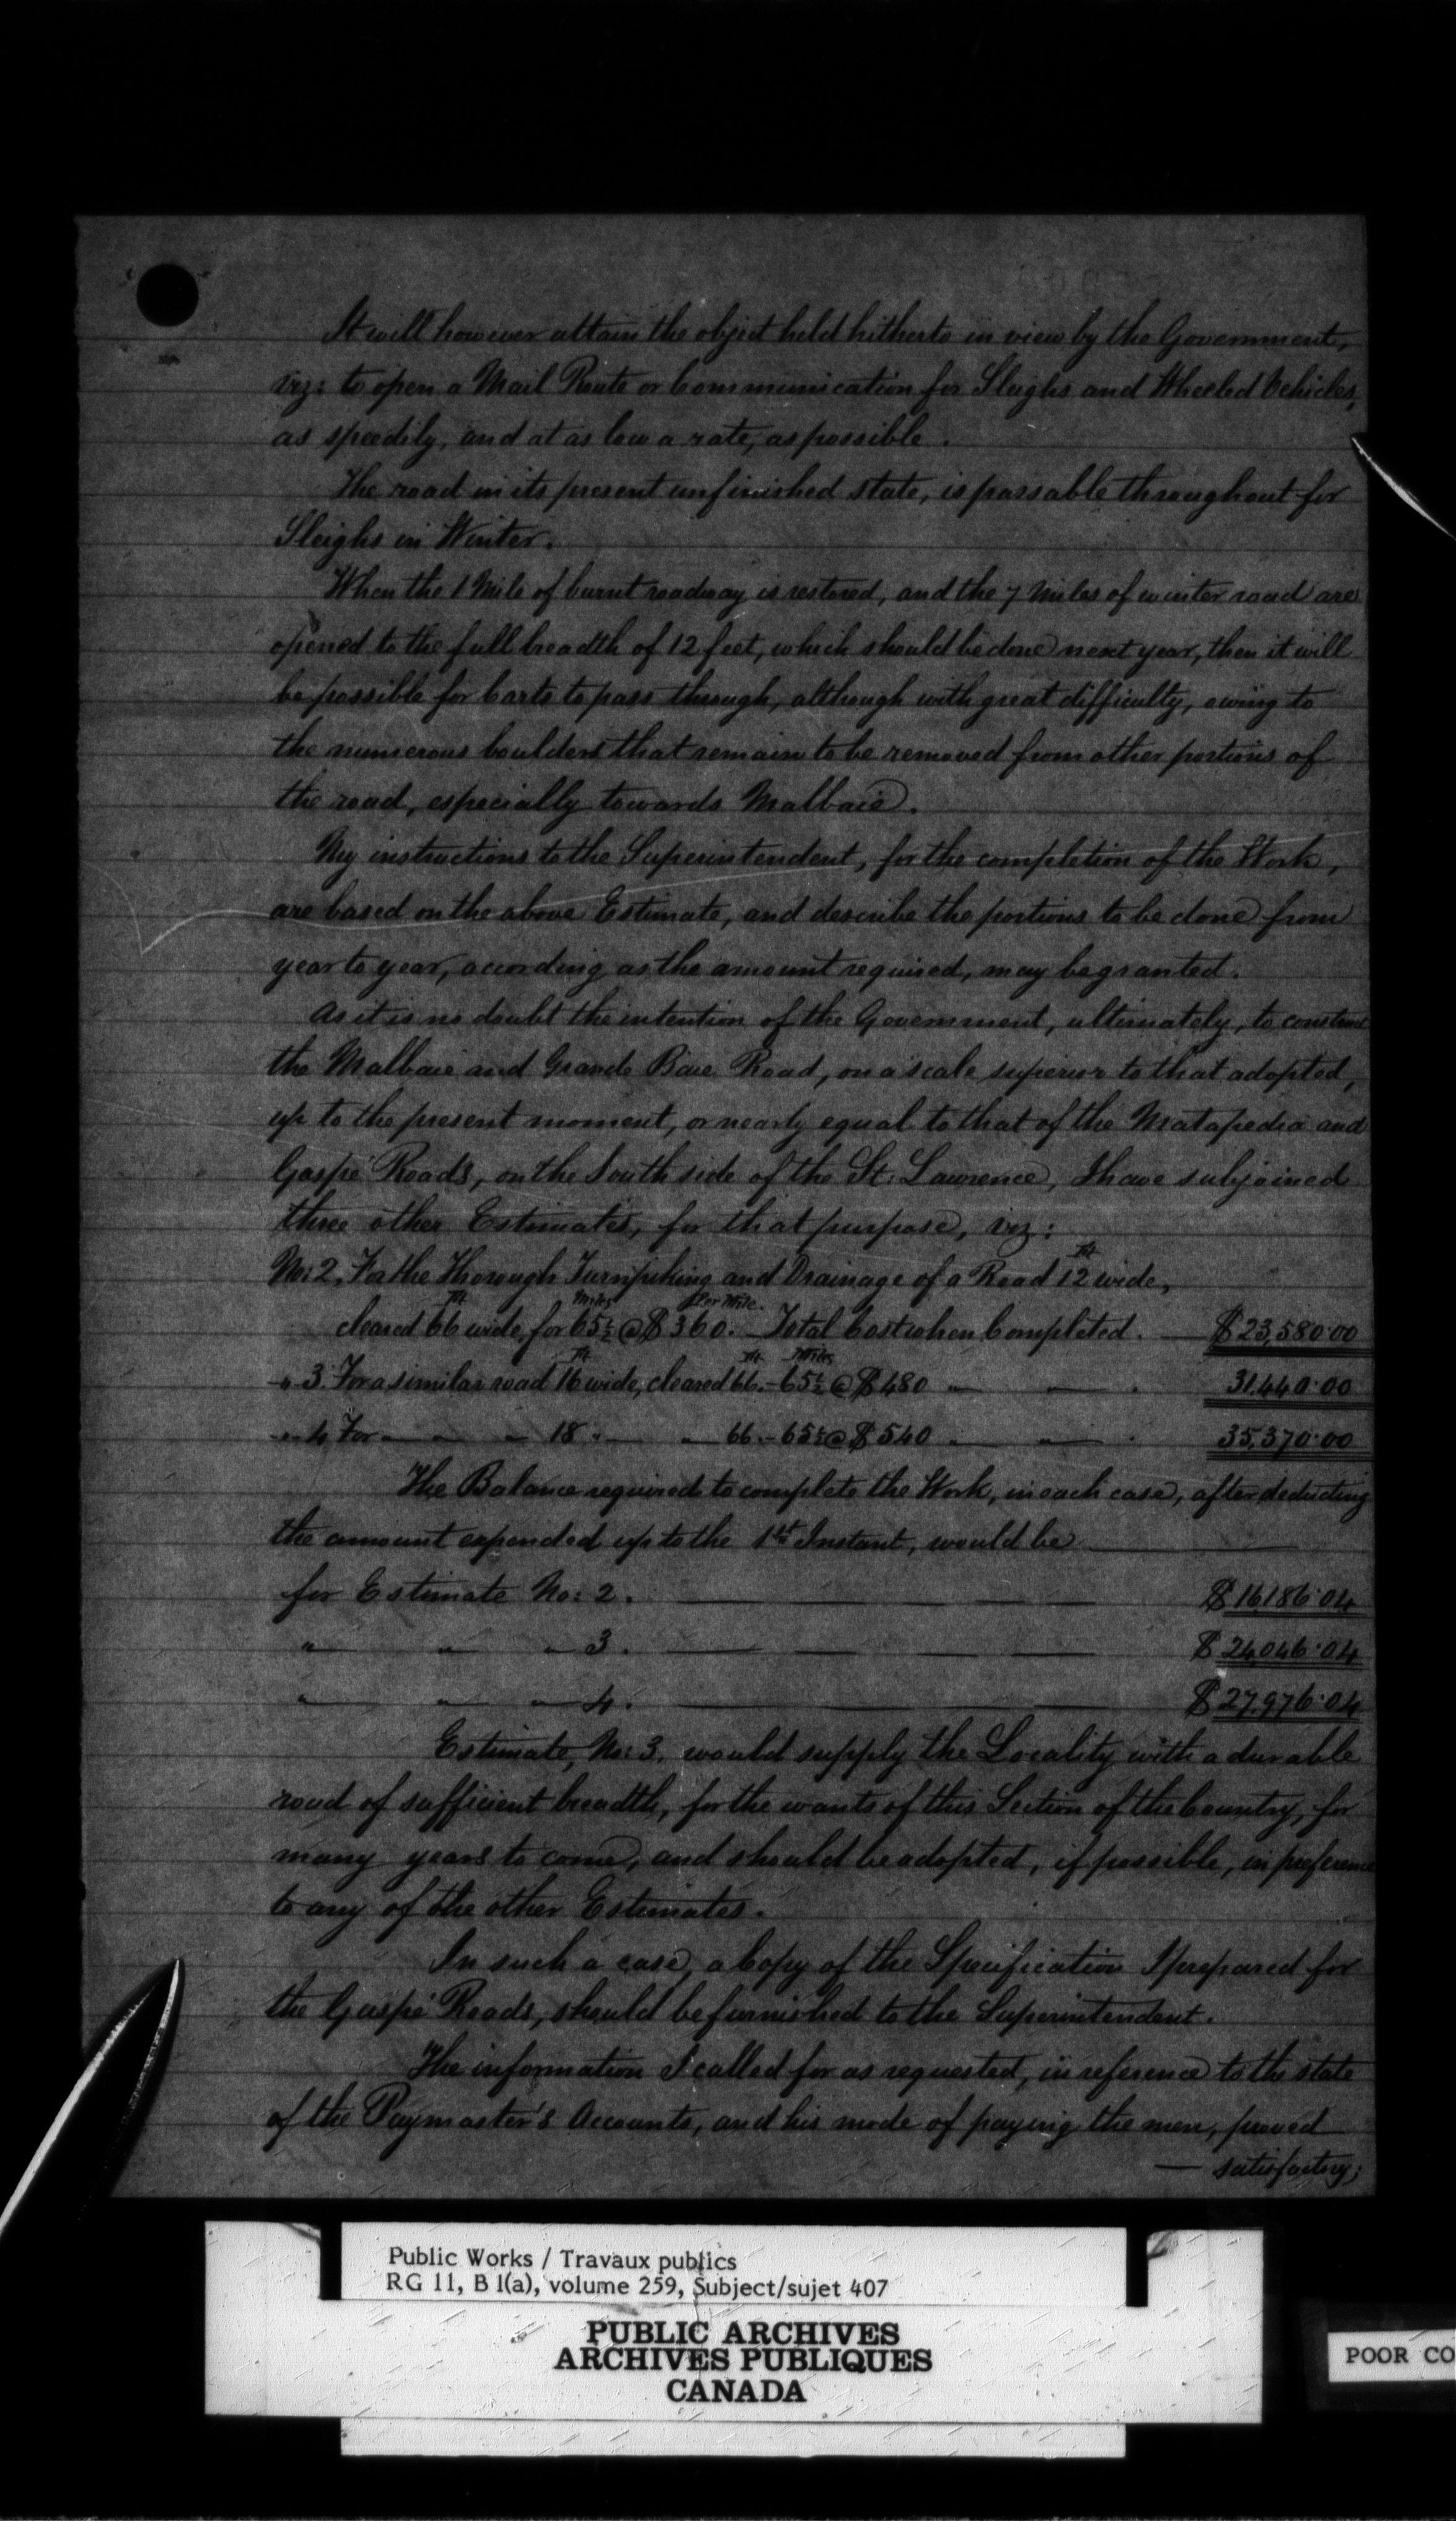 It will however attain the object held hitherto in view by the Government,
viz: to open a Mail Route or Communication for Sleighs and Wheeled Vehicles,
as speedily, and at as low a rate, as possible.
The road in its present unfinished state, is passable throughout for
Sleighs in Winter.
When the 1 Mile of burnt roadway is restored, and the 7 Miles of winter road are
opened to the full breadth of 12 feet, which should be done next year, then it will
be possible for Carts to pass through, although with great difficulty, owing to
the numerous boulders that remain to be removed from other portions of
the road, especially towards Malbaie.
My instructions to the Superintendent, for the completion of the Work,
are based on the above Estimate, and describe the portions to be done from
year to year, according as the amount required, may be granted.
As it is no doubt the intention of the Government, ultimately, to construct
the Malbaie and Grande Baie Road, on a scale superior to that adopted,
up to the present moment, or nearly equal to that of the Matapedia and
Gaspé Roads, on the South side of the St: Lawrence, I have subjoined
three other Estimates, for that purpose, viz:
No: 2. For the Thorough Turnpiking and Drainage of a Road 12 Ft wide,
cleared 66 Ft wide, for 65½ Miles @ $360. Per Mile. Total Cost when Completed. — $23,580.00
" 3. For a similar road 16 Ft wide, cleared 66 Ft. - 65½ Miles @ $480 " — " — . 31,440.00
" 4. For " — " — " 18 " — " 66. - 65½ @ $540 " — " — . 35,370.00
The Balance required to complete the Work, in each case, after deducting
the amount expended up to the 1st Instant, would be ———
for Estimate No: 2. — — — — $16,186.04
" — " — " 3. — — — — $24,046.04
" — " — " 4. — — — — $27,976.04
Estimate, No: 3. would supply the Locality with a durable
road of sufficient breadth, for the wants of this Section of the Country, for
many years to come, and should be adopted, if possible, in preference
to any of the other Estimates.
In such a case, a Copy of the Specification I prepared for
the Gaspé Roads, should be furnished to the Superintendent.
The information I called for as requested, in reference to the state
of the Paymaster's Accounts, and his mode of paying the men, proved
— satisfactory;
Public Works / Travaux publics
RG 11, B 1(a), volume 259, Subject/sujet 407
PUBLIC ARCHIVES
ARCHIVES PUBLIQUES
CANADA
POOR CO